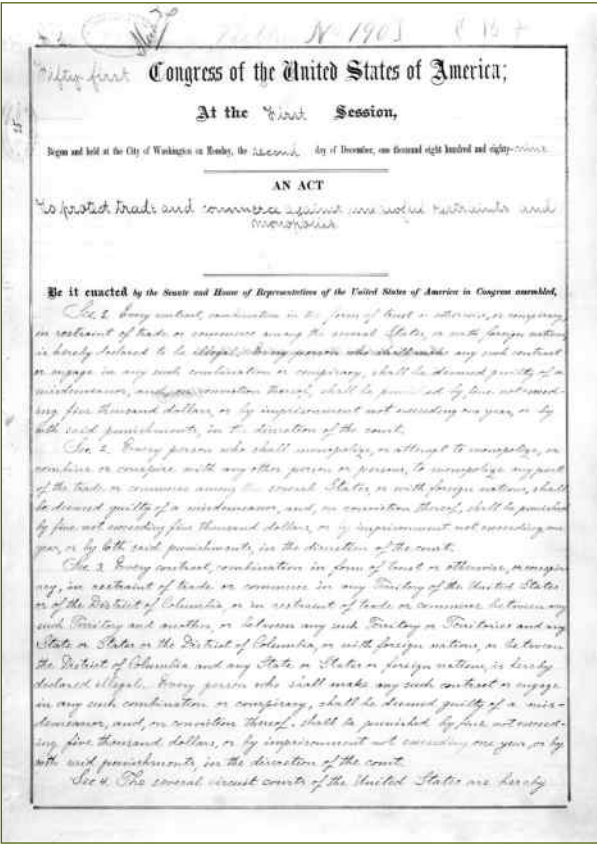 No 1903
Fifty first Congress of the United States of America;
At the First Session,
Begun and held at the City of Washington on Monday, the second day of December, one thousand eight hundred and eighty-nine
AN ACT
To protect trade and commerce against unlawful restraints and
monopolies
Be it enacted by the Senate and House of Representatives of the United States of America in Congress assembled,
Every contract, combination in the form of trust or otherwise, or conspiracy,
in restraint of trade or commerce among the several States, or with foreign nations
is hereby declared to be illegal. Every person who shall make any such contract
or engage in any such combination or conspiracy, shall be deemed guilty of a
misdemeanor, and, on conviction thereof, shall be punished by fine not exceed-
ing five thousand dollars, or by imprisonment not exceeding one year, or by
both said punishments, in the discretion of the court.
Sec. 2. Every person who shall monopolize, or attempt to monopolize, or
combine or conspire with any other person or persons, to monopolize any part
of the trade or commerce among the several States, or with foreign nations, shall
be deemed guilty of a misdemeanor, and, on conviction thereof, shall be punished
by fine not exceeding five thousand dollars, or by imprisonment not exceeding one
year, or by both said punishments, in the discretion of the court.
Sec. 3. Every contract, combination in form of trust or otherwise, or conspir-
acy, in restraint of trade or commerce in any Territory of the United States
or of the District of Columbia, or in restraint of trade or commerce between any
such Territory and another, or between any such Territory or Territories and any
State or States or the District of Columbia, or with foreign nations, or between
the District of Columbia and any State or States or foreign nations, is hereby
declared illegal. Every person who shall make any such contract or engage
in any such combination or conspiracy, shall be deemed guilty of a mis-
demeanor, and, on conviction thereof, shall be punished by fine not exceed-
ing five thousand dollars, or by imprisonment not exceeding one year, or by
both said punishments, in the discretion of the court.
Sec. 4. The several circuit courts of the United States are hereby